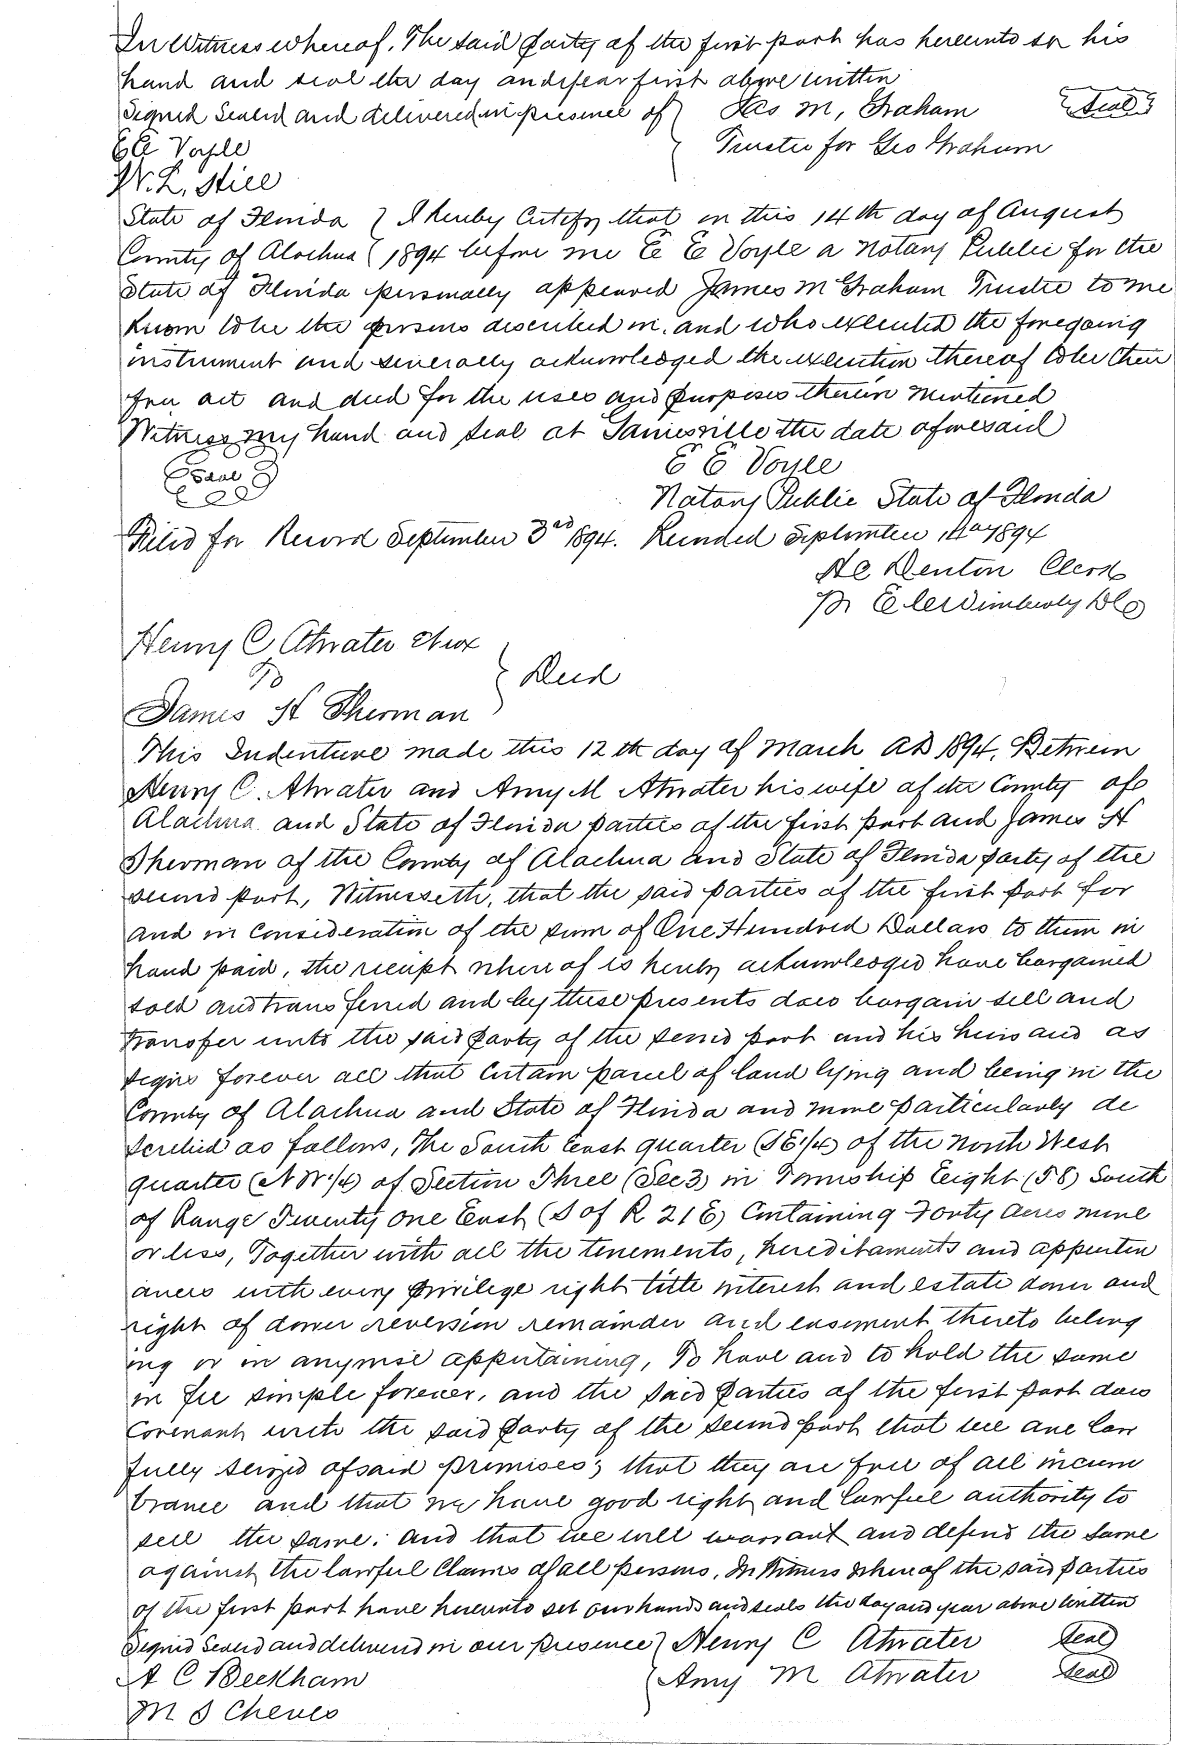 In Witness whereof, The said party of the first part has hereunto set his
hand and seal the day and year first above written
Signed Sealed and delivered in presence of } Jas M, Graham (Seal)
E E Voyle Trustee for Geo Graham
W. L. Hill
State of Florida } I hereby Certify that on this 14th day of August
County of Alachua ( 1894 before me E E Voyle a Notary Public for the
State of Florida personally appeared James M Graham Trustee to me
known to be the persons described in. and who executed the foregoing
instrument and severally acknowledged the execution thereof to be their
free act and deed for the uses and purposes therein mentioned
Witness my hand and seal at Gainesville the date aforesaid
(Seal) E E Voyle
Notary Public State of Florida
Filed for Record September 3rd 1894. Recorded September 1894
H C Denton Clerk
pr E C Wimberly DC
Henry C Atwater & wx
To } Deed
James H Sherman
This Indenture made this 12th day of March AD 1894, Between
Henry C. Atwater and Amy M Atwater his wife of the County of
Alachua and State of Florida parties of the first part and James H
Sherman of the County of Alachua and State of Florida party of the
second part, Witnesseth, that the said parties of the first part for
and in consideration of the sum of One Hundred Dollars to them in
hand paid, the receipt whereof is hereby acknowledged have bargained
sold and transferred and by these presents does bargain sell and
transfer unto the said party of the second part and his heirs and as
signs forever all that certain parcel of land lying and being in the
County of Alachua and State of Florida and more particularly de
scribed as follows, The South East quarter (SE1/4) of the North West
quarter (NW1/4) of Section Three (Sec3) in Township Eight (T8) South
of Range Twenty One East (S of R 21E) Containing Forty Acres more
or less, Together with all the tenements, hereditaments and appurten
ances with every privilege right title interest and estate dower and
right of dower reversion remainder and easement thereto belong
ing or in anywise appertaining, To have and to hold the same
in fee simple forever, and the said parties of the first part does
Covenant with the said party of the second part that we are law
fully seized of said premises; that they are free of all incum
brance and that we have good right and lawful authority to
sell the same; and that we will warrant and defend the same
against the lawful Claims of all persons, In Witness whereof the said parties
of the first part have hereunto set our hands and seals the day and year above written
Signed Sealed and delivered in our presence } Henry C Atwater (Seal)
A C Beckham Amy M Atwater (Seal)
M S Cheves